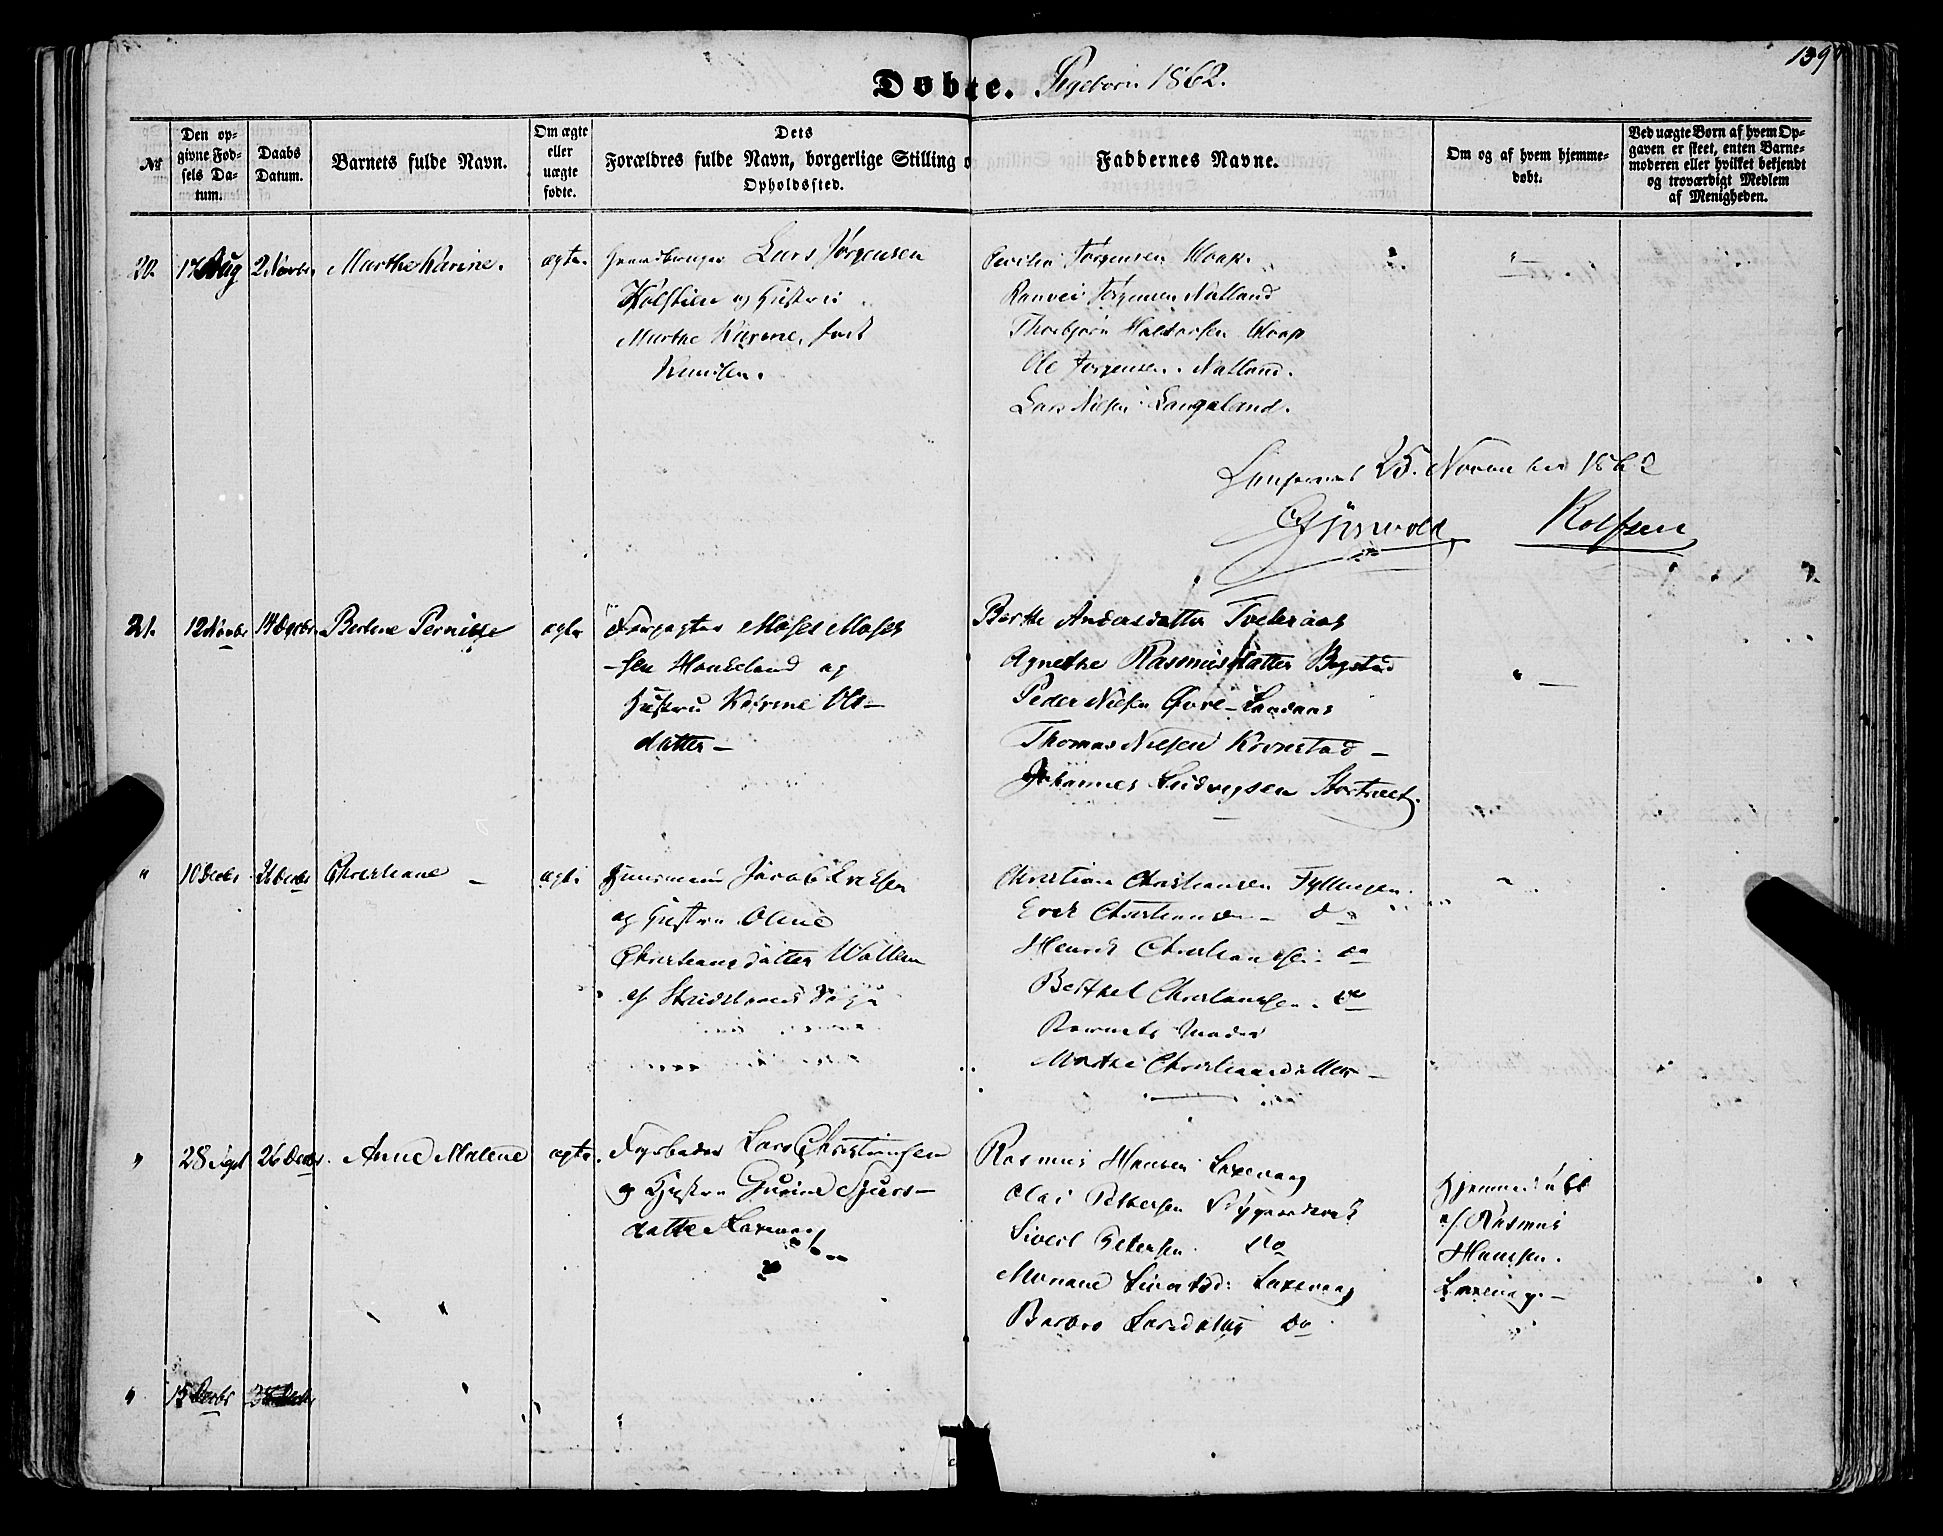 139
Døbte. Pigebørn 1862.
No
Den op-
givne Fød-
sels Da-
tum.
Daabs
Datum.
Barnets fulde Navn.
Om ægte
eller
uægte
fødte.
Dets
Forældres fulde Navn, borgerlige Stilling o
Opholdssted.
Faddernes Navne.
Om og af hvem hjemme-
døbt.
Ved uægte Børn af hvem Op-
gaven er skeet, enten Barne-
moderen eller hvilket bekjendt
og troværdigt Medlem
af Menigheden.
20. 17 Aug 2 Novbr. Marthe Karine. ægte. Lars Jørgensen
og Hustru
Marthe Karine, født
Knudsen.
Jørgensen Hoap.
Ranvei Jørgensen Natland
Thorbjørn Haldorsen Hoap
Ole Jørgensen. Natland.
Lars Nilsen Langeland.
25. November 1862
Rolfsen
21. 12 Novbr 14 Decbr. Berlene Pernille ægte Forpagter Moses Moses
-sen Haukeland og
Hustru Karine Ols-
datter -
Berthe Andersdatter Tveteraas
Agnethe Rasmusdatter Bystad
Peder Nilsen Øvre-Landaas
Thomas Nilsen Kronstad -
Johannes Ludvigsen Stortveit.
" 10 Decbr 26 Decbr Christiane - ægte Huusmand Jacob Ericksen
og Hustru Oline
Christiansdatter Wallem
af Skudeshavns Sogn
Christian Christiansen Fyllingen.
Erik Christiansen - do
Henrik Christiansen do
Berthel Christiansen. do
Barnets Moder
Marthe Christiansdatter -
" 28 Sept 26 Decbr. Anne Malene ægte. Fyrbøder Lars Christiansen
og Hustru Gurine Sjurs-
datter Laxevaag
Rasmus Hansen Laxevaag
Olai Pettersen Nygaardsvik
Sivert Petersen do
Monane Sivertsd: Laxevaag
Barbro Larsdatter do
Hjemmedøbt
af Rasmus
Hansen.
Laxevaag. -
" 15 Decbr 28 Decbr